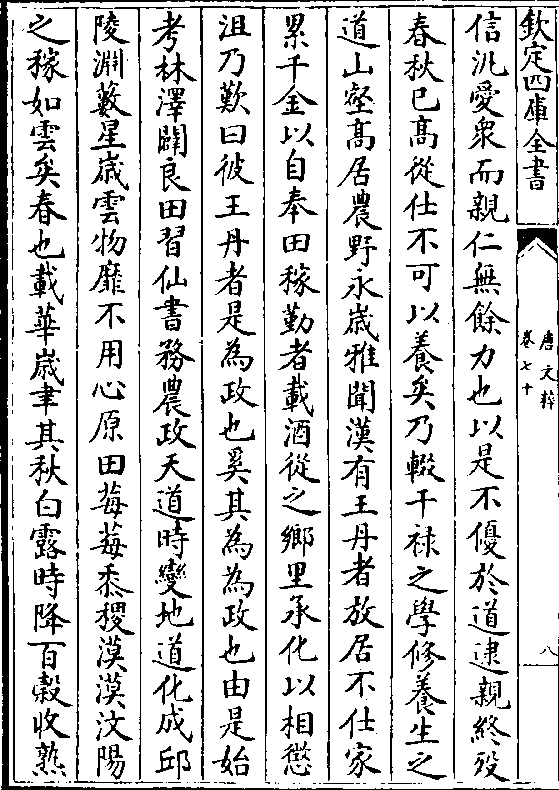 欽定四庫全書
唐文粹
卷七十
八
信汎愛衆而親仁無餘力也以是不優於道逮親終歿
春秋已髙從仕不可以養矣乃輟干禄之學修養生之
道山壑髙居農野永嵗雅聞漢有王丹者放居不仕家
累千金以自奉田稼勤者載酒從之鄉里承化以相懲
沮乃歎曰彼王丹者是為政也奚其為為政也由是始
考林澤闢良田習仙書務農政天道時變地道化成邱
陵淵藪星嵗雲物靡不用心原田莓莓黍稷漠漠汶陽
之稼如雲矣春也載華嵗聿其秋白露時降百糓收熟